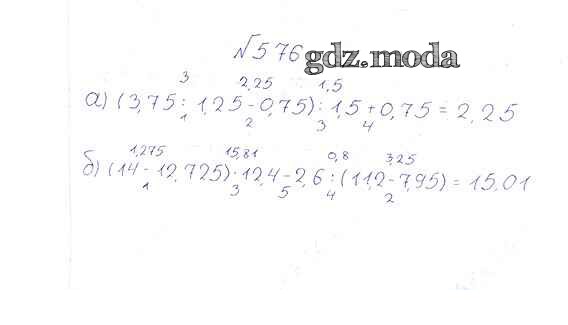 №576 gdz.moda
3 2,25 1,5
а) (3,75 : 1,25 - 0,75) : 1,5 + 0,75 = 2,25
1 2 3 4
1,275 15,81 0,8 3,25
б) (14 - 12,725) · 12,4 - 2,6 : (11,2 - 7,95) = 15,01
1 3 5 4 2